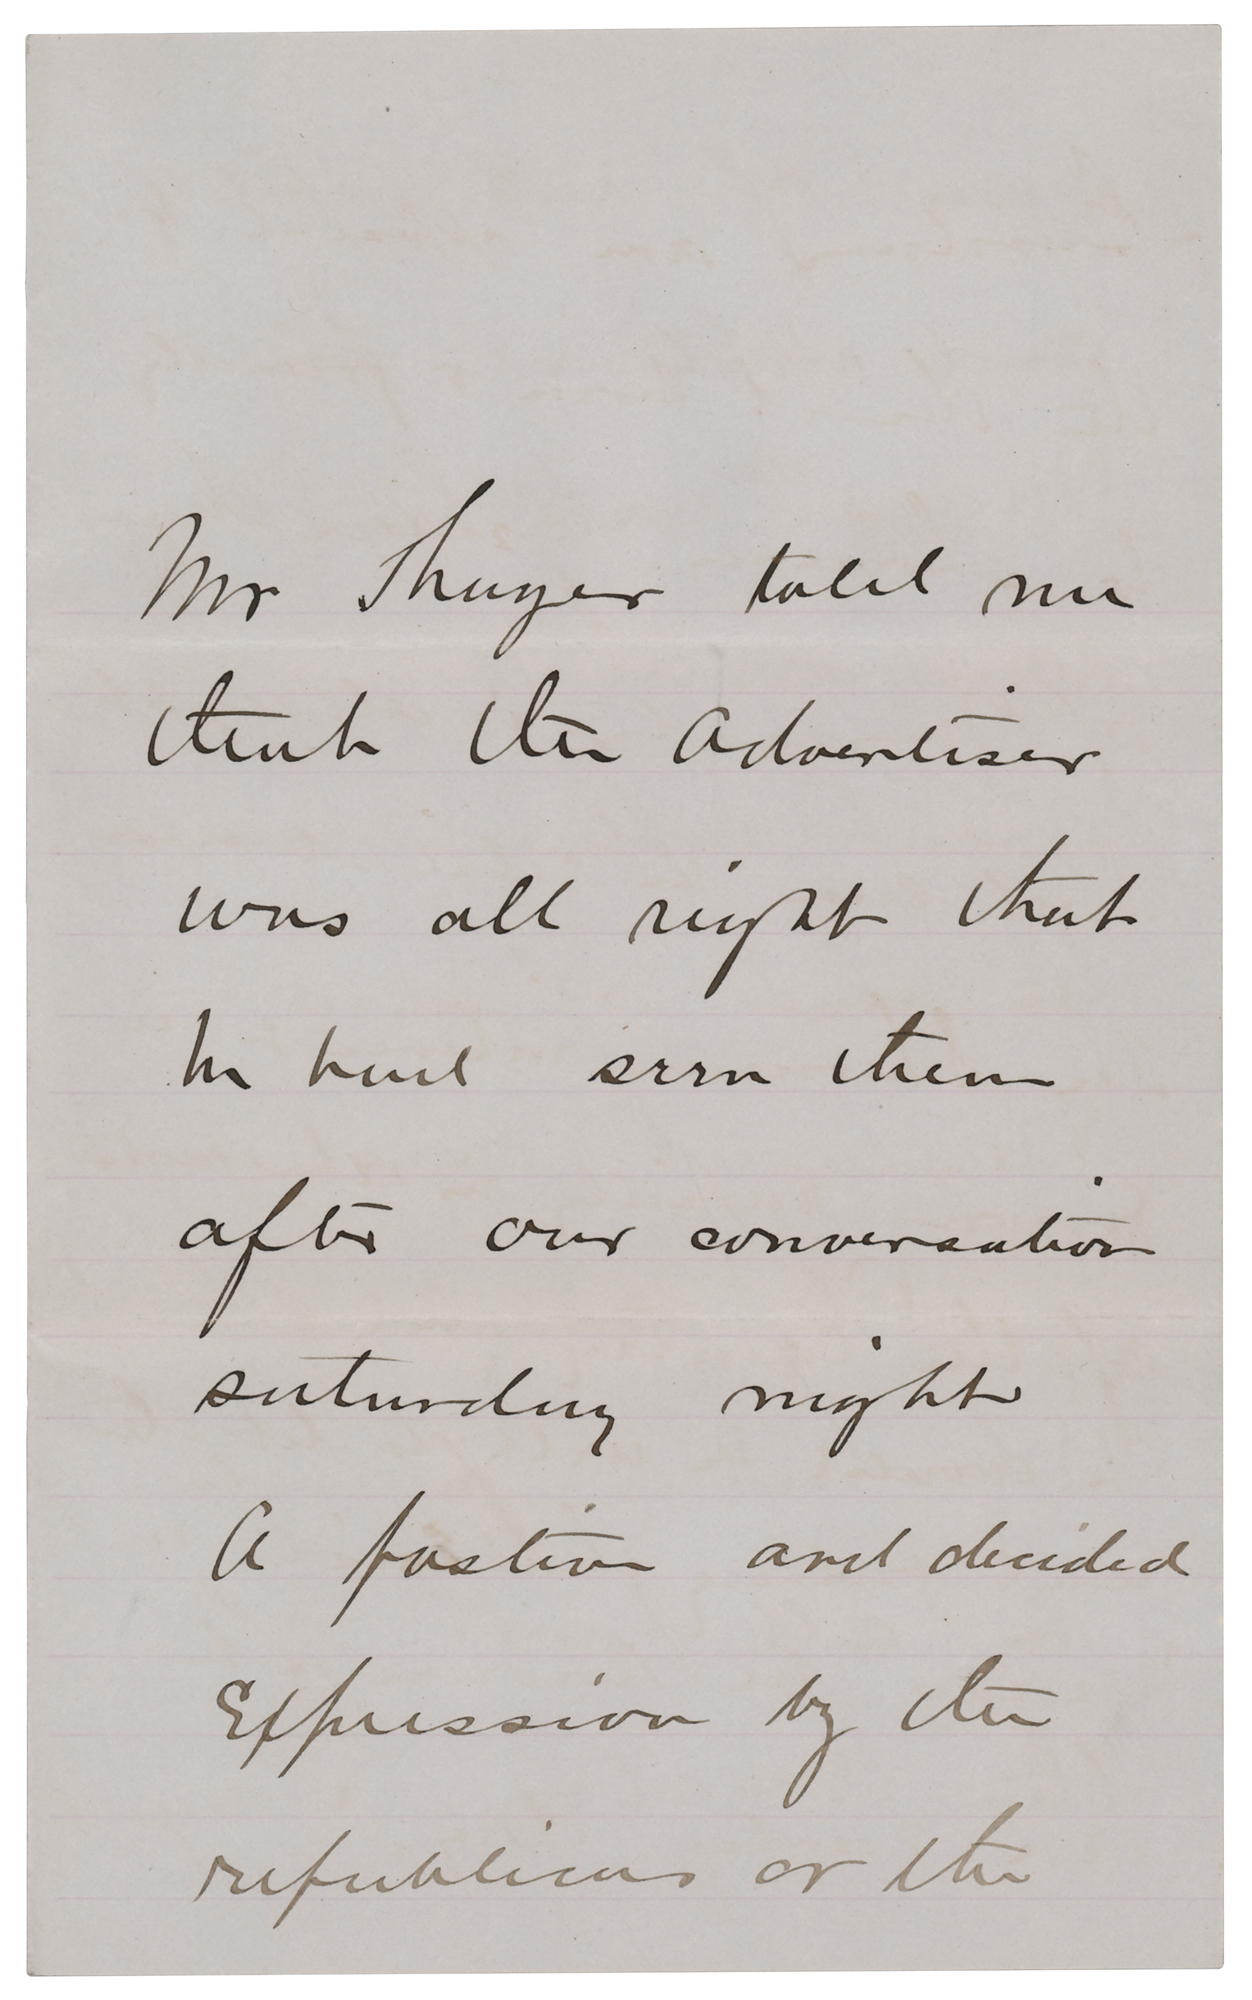 Mr Thayer told me
that the Advertiser
was all right that
he had seen them
after our conversation
saturday night
A postion and decided
Expression by the
republicans or the